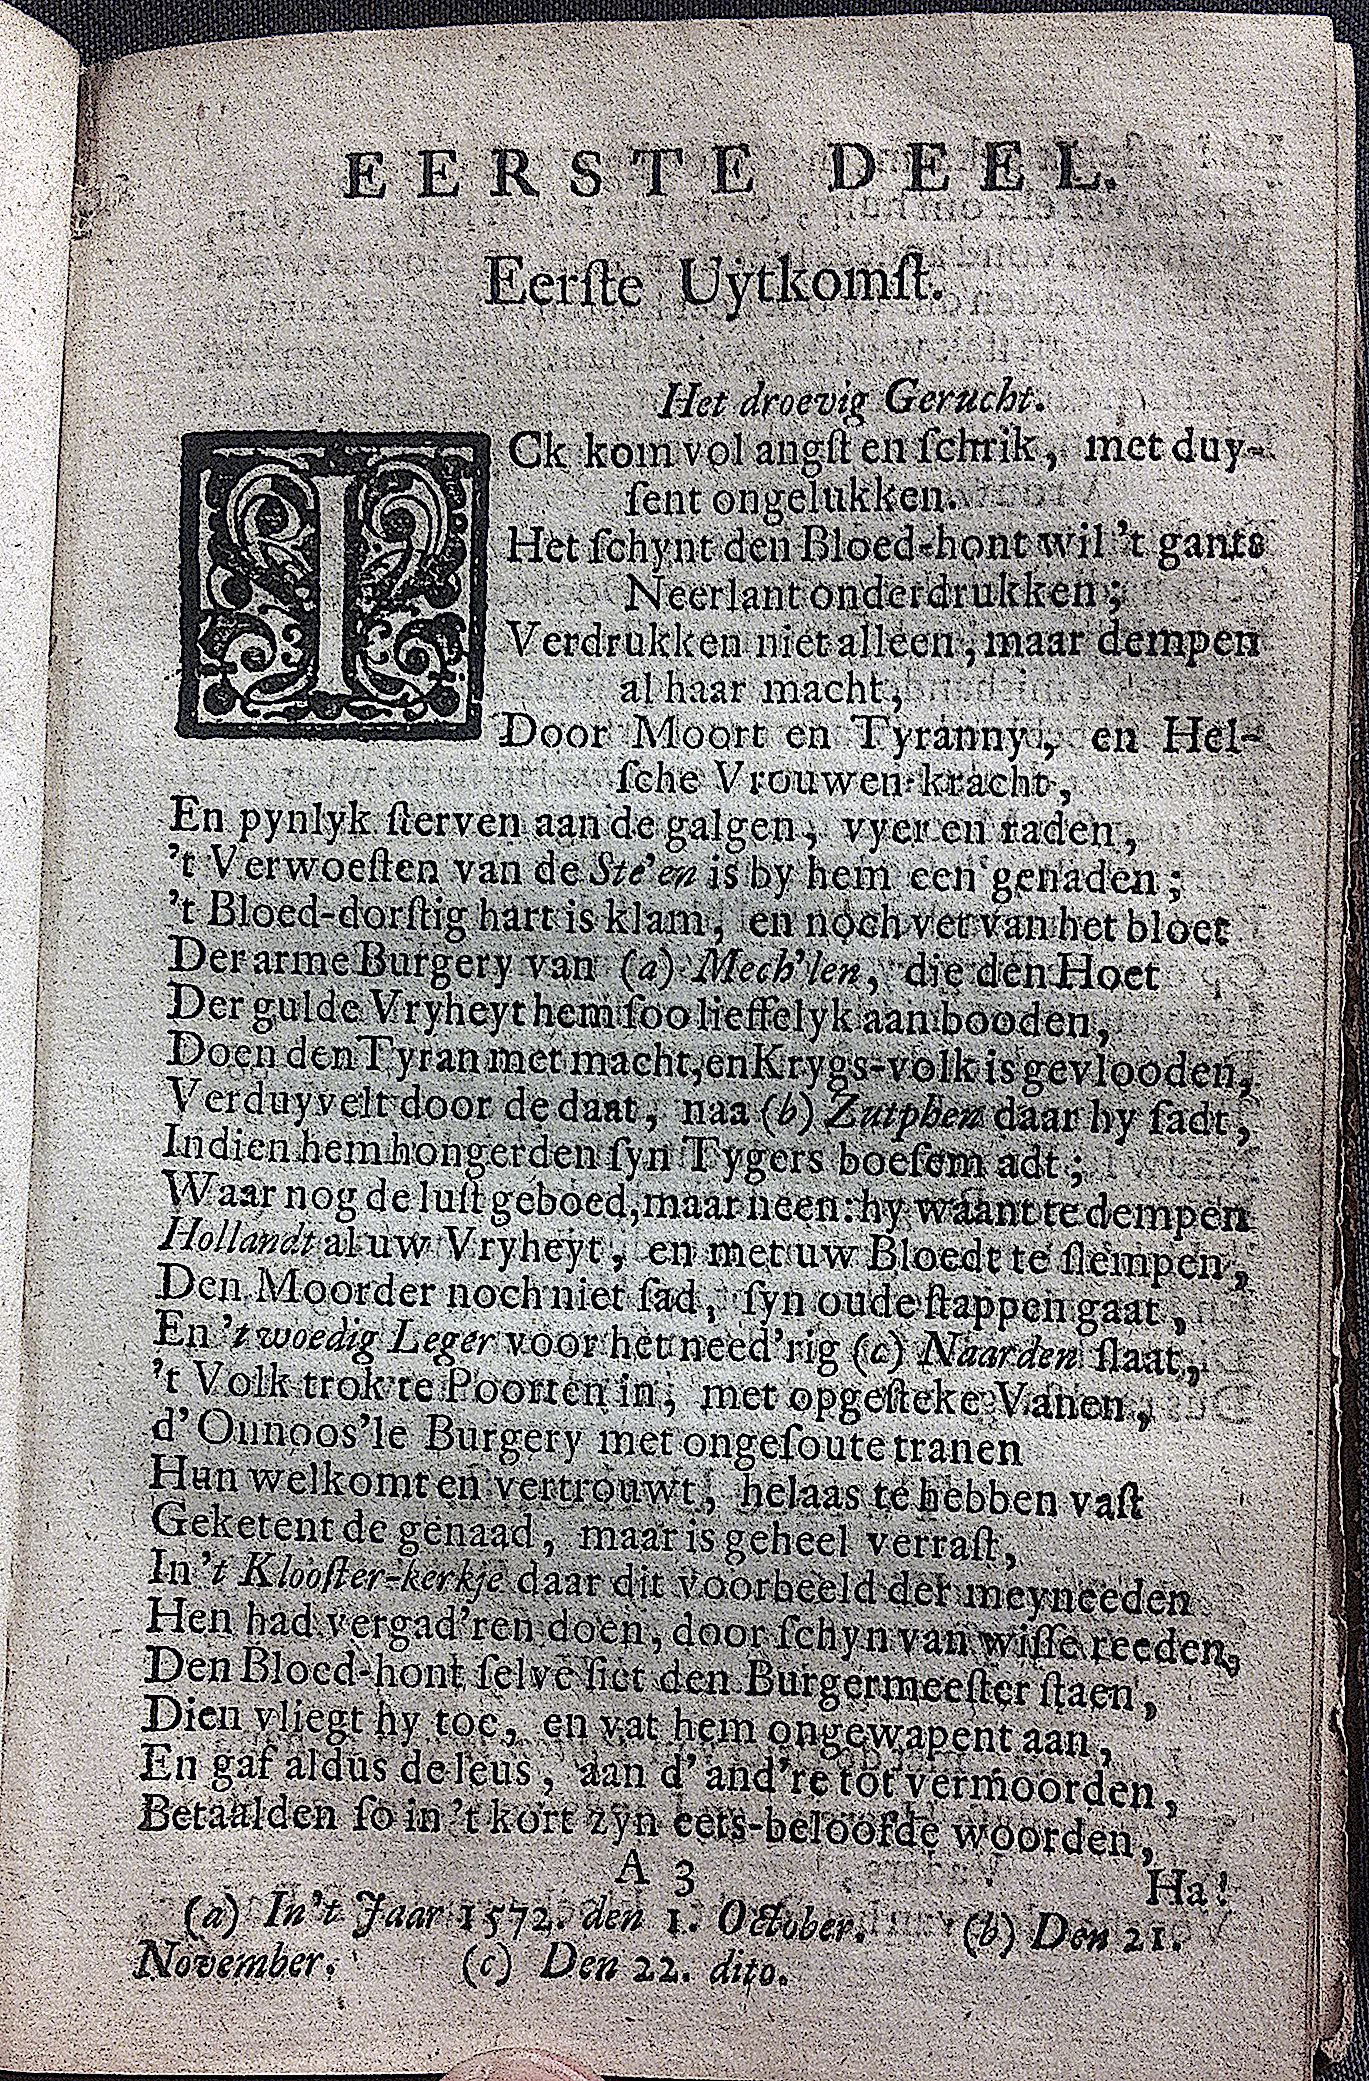 EERSTE DEEL.
Eerſte Uÿtkomſt.
Het droevig Gerucht.
ICk kom vol angſt en ſchrik, met duy-
ſent ongelukken.
Het ſchynt den Bloed-hont wil 't gants
Neerlant onderdrukken;
Verdrukken niet alleen, maar dempen
al haar macht,
Door Moort en Tyranny, en Hel-
ſche Vrouwen-kracht,
En pynlyk ſterven aan de galgen, vyer en raden,
't Verwoeſten van de Ste'en is by hem een genaden;
't Bloed-dorſtig hart is klam, en noch vet van het bloet
Der arme Burgery van (a) Mech'len, die den Hoet
Der gulde Vryheyt hem ſoo lieffelyk aanbooden,
Doen den Tyran met macht, en Krygs-volk is gevlooden,
Verduyvelt door de daat, naa (b) Zutphen daar hy ſadt,
Indien hem hongerden ſyn Tygers boeſem adt;
Waar nog de luſt geboed, maar neen: hy waant te dempen
Hollandt al uw Vryheyt, en met uw Bloedt te ſlempen,
Den Moorder noch niet ſad, ſyn oude ſtappen gaat,
En 't woedig Leger voor het need'rig (c) Naarden ſlaat,
't Volk trok te Poorten in, met opgeſteke Vanen,
d'Onnoos'le Burgery met ongeſoute tranen
Hun welkomt en vertrouwt, helaas te hebben vaſt
Geketent de genaad, maar is geheel verraſt,
In 't Klooſter-kerkje daar dit voorbeeld der meyneeden
Hen had vergad'ren doen, door ſchyn van wiſſe reeden,
Den Bloed-hont ſelve ſiet den Burgermeeſter ſtaen,
Dien vliegt hy toe, en vat hem ongewapent aan,
En gaf aldus de leus, aan d'and're tot vermoorden,
Betaalden ſo in 't kort zyn eets-beloofde woorden,
A 3
Ha!
(a) In 't Jaar 1572. den 1. October. (b) Den 21.
November. (c) Den 22. dito.